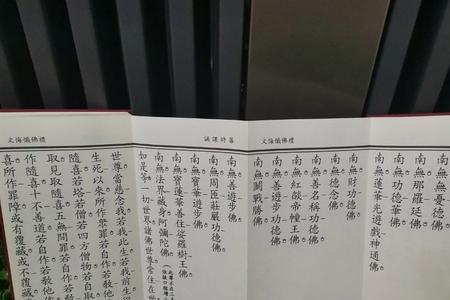 禮佛懺悔文
南無無憂德佛
南無那羅延佛
南無功德華佛
南無蓮華光遊戲神通佛
南無財功德佛
南無德念佛
南無善名稱功德佛
南無紅燄帝幢王佛
南無善遊步功德佛
南無鬭戰勝佛
暮時課誦
南無善遊步佛
南無周匝莊嚴功德佛
南無寶華遊步佛
南無寶蓮華善住娑羅樹王佛
南無法界藏身阿彌陀佛
如是等一切世界諸佛世尊常住在世
禮佛懺悔文
世尊當慈念我若我此生若我前生從
生死以來所作眾罪若自作若教他作
隨喜若塔若僧若四方僧物若自取
取見取隨喜五無間罪若自作若教他
作隨喜十不善道若自作若教他作
喜所作罪障或有覆藏或不覆藏